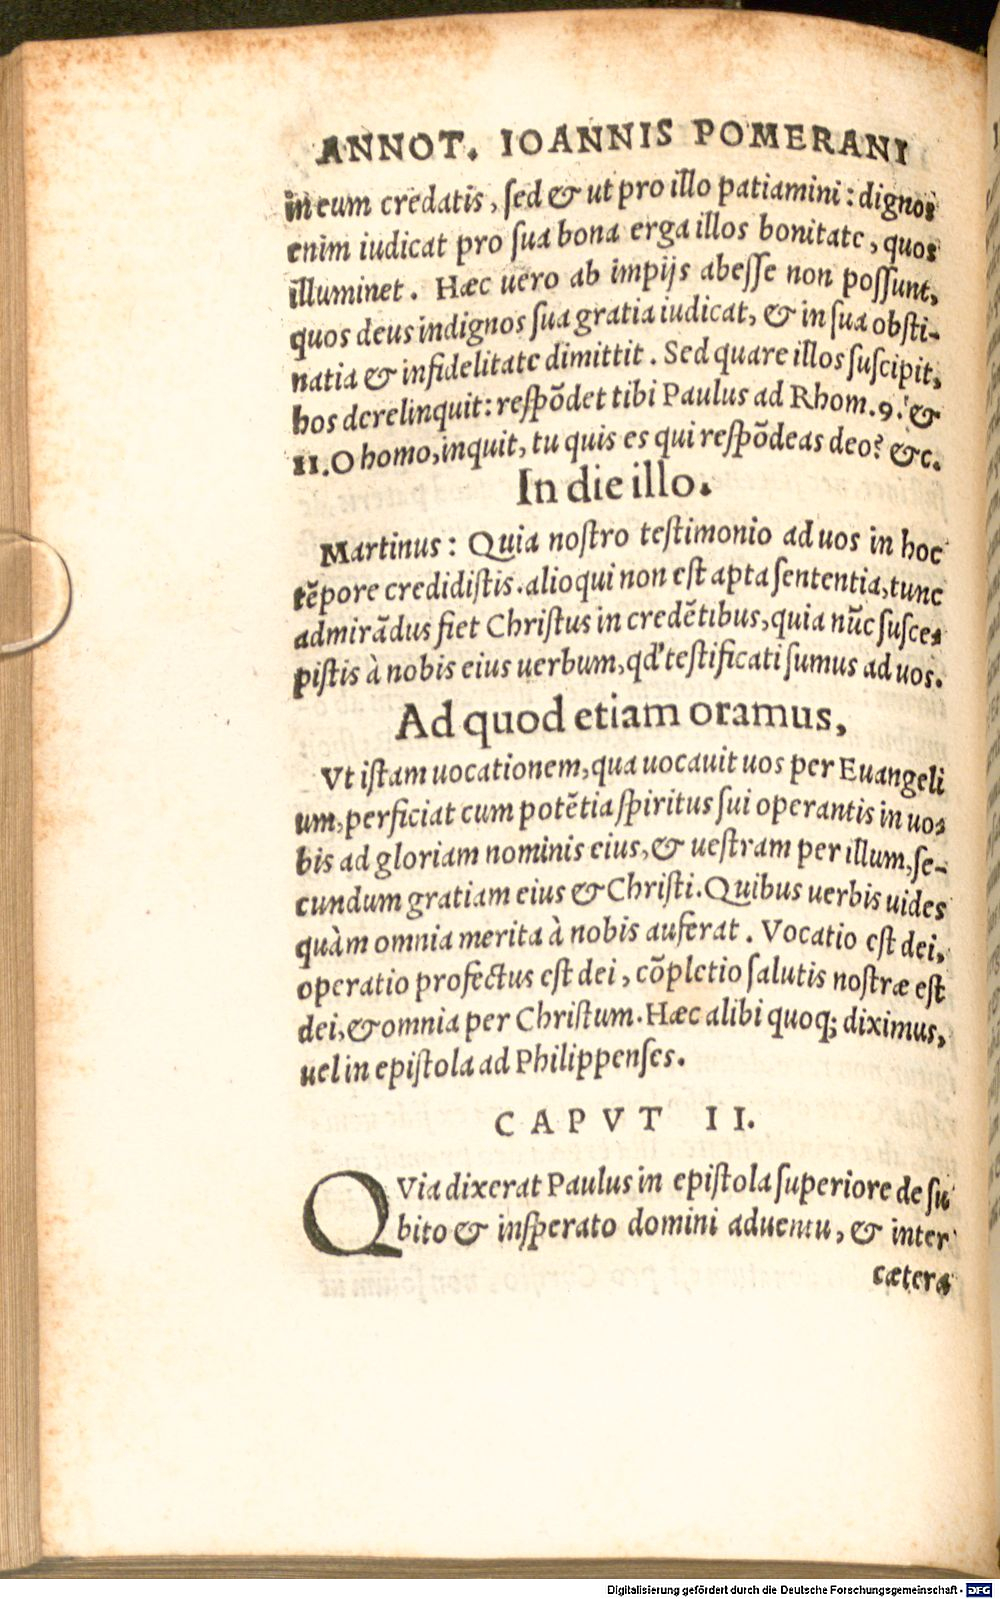 ANNOT. IOANNIS POMERANI
in eum credatis, sed & ut pro illo patiamini: dignos
enim iudicat pro sua bona erga illos bonitate, quos
illuminet. Hæc uero ab impijs abesse non possunt,
quos deus indignos sua gratia iudicat, & in sua obsti-
natia & infidelitate dimittit. Sed quare illos suscipit,
hos derelinquit: respõdet tibi Paulus ad Rhom. 9. &
11. O homo, inquit, tu quis es qui respõdeas deo? &c.
In die illo.
Martinus: Quia nostro testimonio ad uos in hoc
tẽpore credidistis. alioqui non est apta sententia, tunc
admirãdus fiet Christus in credẽtibus, quia nũc susce-
pistis à nobis eius uerbum, qđ testificati sumus ad uos.
Ad quod etiam oramus,
Vt istam uocationem, qua uocauit uos per Euangeli
um, perficiat cum potẽtia spiritus sui operantis in uo-
bis ad gloriam nominis eius, & uestram per illum, se-
cundum gratiam eius & Christi. Quibus uerbis uides
quàm omnia merita à nobis auferat. Vocatio est dei,
operatio profectus est dei, cõpletio salutis nostræ est
dei, & omnia per Christum. Hæc alibi quoq; diximus,
uel in epistola ad Philippenses.
CAPVT II.
QVia dixerat Paulus in epistola superiore de su
bito & insperato domini aduentu, & inter
cætera
Digitalisierung gefördert durch die Deutsche Forschungsgemeinschaft - DFG